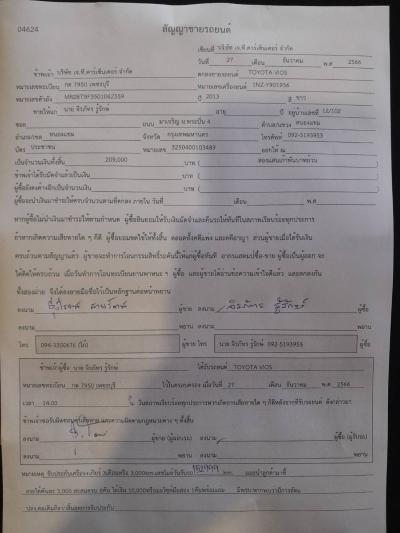 04624
สัญญาขายรถยนต์
เขียนที่ บริษัท เจ.ที.คาร์เซ็นเตอร์ จำกัด
วันที่ 27 เดือน ธันวาคม พ.ศ 2566
ข้าพเจ้า บริษัท เจ.ที.คาร์เซ็นเตอร์ จำกัด ตกลงขายรถยนต์ TOYOTA VIOS
หมายเลขทะเบียน กต 7950 เพชรบุรี หมายเลขเครื่องยนต์ 1NZ-Y901956
หมายเลขตัวถัง ปี 2013 สี ขาว
ขายให้แก่ นาย จิรภัทร รู้รักษ์ อายุ ปี อยู่บ้านเลขที่ 12/102
ซอย ถนน มาเจริญ แพรกปิ่น 4 ตำบล/แขวง หนองแขม
อำเภอ/เขต หนองแขม จังหวัด กรุงเทพมหานคร โทรศัพท์ 092-5193953
บัตร ประชาชน หมายเลข 3250400103489 ออกให้ ณ
เป็นจำนวนเงินทั้งสิ้น 209,000 บาท ( สองแสนเก้าพันบาทถ้วน
ข้าพเจ้าได้รับมัดจำแล้วเป็นเงิน บาท (
ผู้ซื้อยังคงค้างอีกเป็นจำนวนเงิน บาท (
ผู้ซื้อจะนำเงินมาชำระให้ครบจำนวนตามที่ตกลง ภายใน วันที่ เดือน พ.ศ.
หากผู้ซื้อไม่นำเงินมาชำระให้ตามกำหนด ผู้ซื้อยินยอมให้ริบเงินมัดจำและคืนรถให้ทันทีในสภาพเรียบร้อยทุกประการ
ถ้าหากเกิดความเสียหายใด ๆ ก็ดี ผู้ซื้อยอมชดใช้ให้ทั้งสิ้น ตลอดทั้งคดีแพ่ง และคดีอาญา ส่วนผู้ขายเมื่อได้รับเงิน
ครบถ้วนตามสัญญาแล้ว ผู้ขายจะทำการโอนกรรมสิทธิ์รถคันนี้ให้แก่ผู้ซื้อทันที อากรแสตมป์ซื้อ-ขาย ผู้ซื้อเป็นผู้ออก จะ
ได้ติดให้ครบถ้วน เมื่อวันทำการโอนทะเบียนยานพาหนะ ฯ ผู้ซื้อ และผู้ขายได้อ่านข้อความเข้าใจดีแล้ว และตกลงกัน
ทั้งสองฝ่าย จึงได้ลงลายมือชื่อไว้เป็นหลักฐานต่อหน้าพยาน
ลงนาม ผู้ขาย ลงนาม ผู้ซื้อ
ลงนาม พยาน ลงนาม พยาน
โทร 094-3350676 (โก้) ผู้ขาย โทร นาย จิรภัทร รู้รักษ์ 092-5193953 ผู้ซื้อ
ข้าพเจ้าผู้ซื้อ นาย จิรภัทร รู้รักษ์ ได้รับรถยนต์ TOYOTA VIOS
หมายเลขทะเบียน กต 7950 เพชรบุรี ไว้ในครอบครอง เมื่อวันที่ 27 เดือน ธันวาคม พ.ศ. 2566
เวลา 14.00 น.
ข้าพเจ้าขอรับผิดชอบชดใช้เสียหาย และความผิดตามกฎหมายต่าง ๆ ทั้งสิ้น
ลงนาม ผู้ขาย (ผู้มอบรถ) ลงนาม ผู้ซื้อ (ผู้รับรถ)
ลงนาม พยาน ลงนาม พยาน
หมายเหตุ รับประกันเครื่อง+เกียร์ 3เดือนหรือ 3,000km. 152999 km.